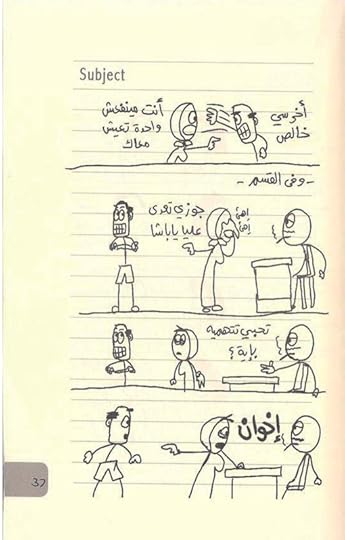 Subject
أخرسي
خالص
أنت مينفعش
واحدة تعيش
معاك
- وفى القسم -
إهئ
إهئ
جوزي تعدى
عليا ياباشا
تحبي تتهميه
بإية ؟
إخوان
37